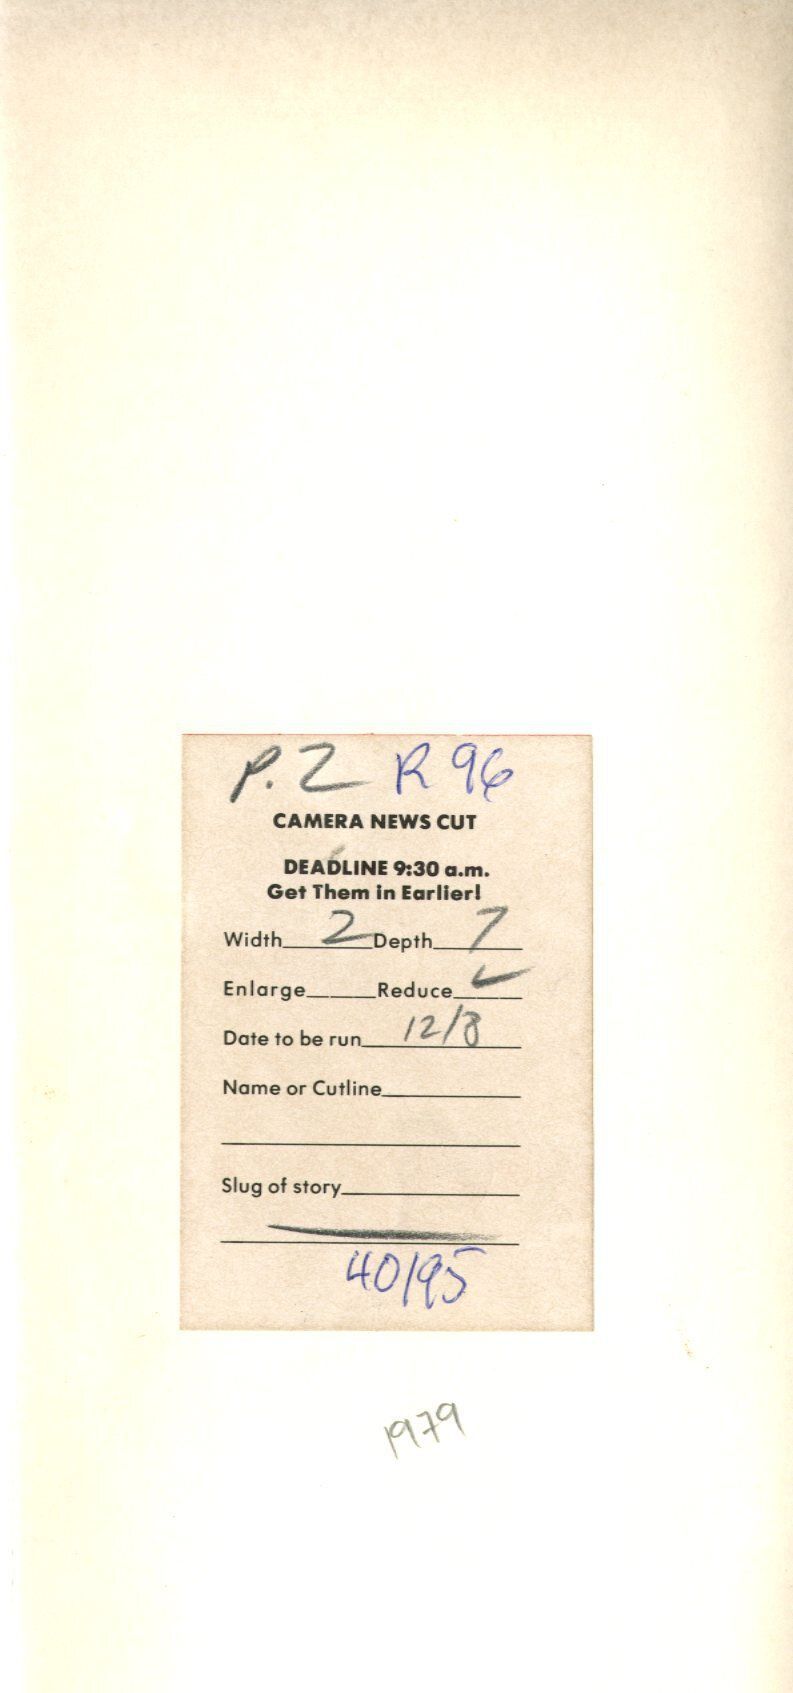 P. 2 R 96
CAMERA NEWS CUT
DEADLINE 9:30 a.m.
Get Them in Earlier!
Width 2 Depth 7
Enlarge Reduce ✓
Date to be run 12/8
Name or Cutline
Slug of story
40/95
1979